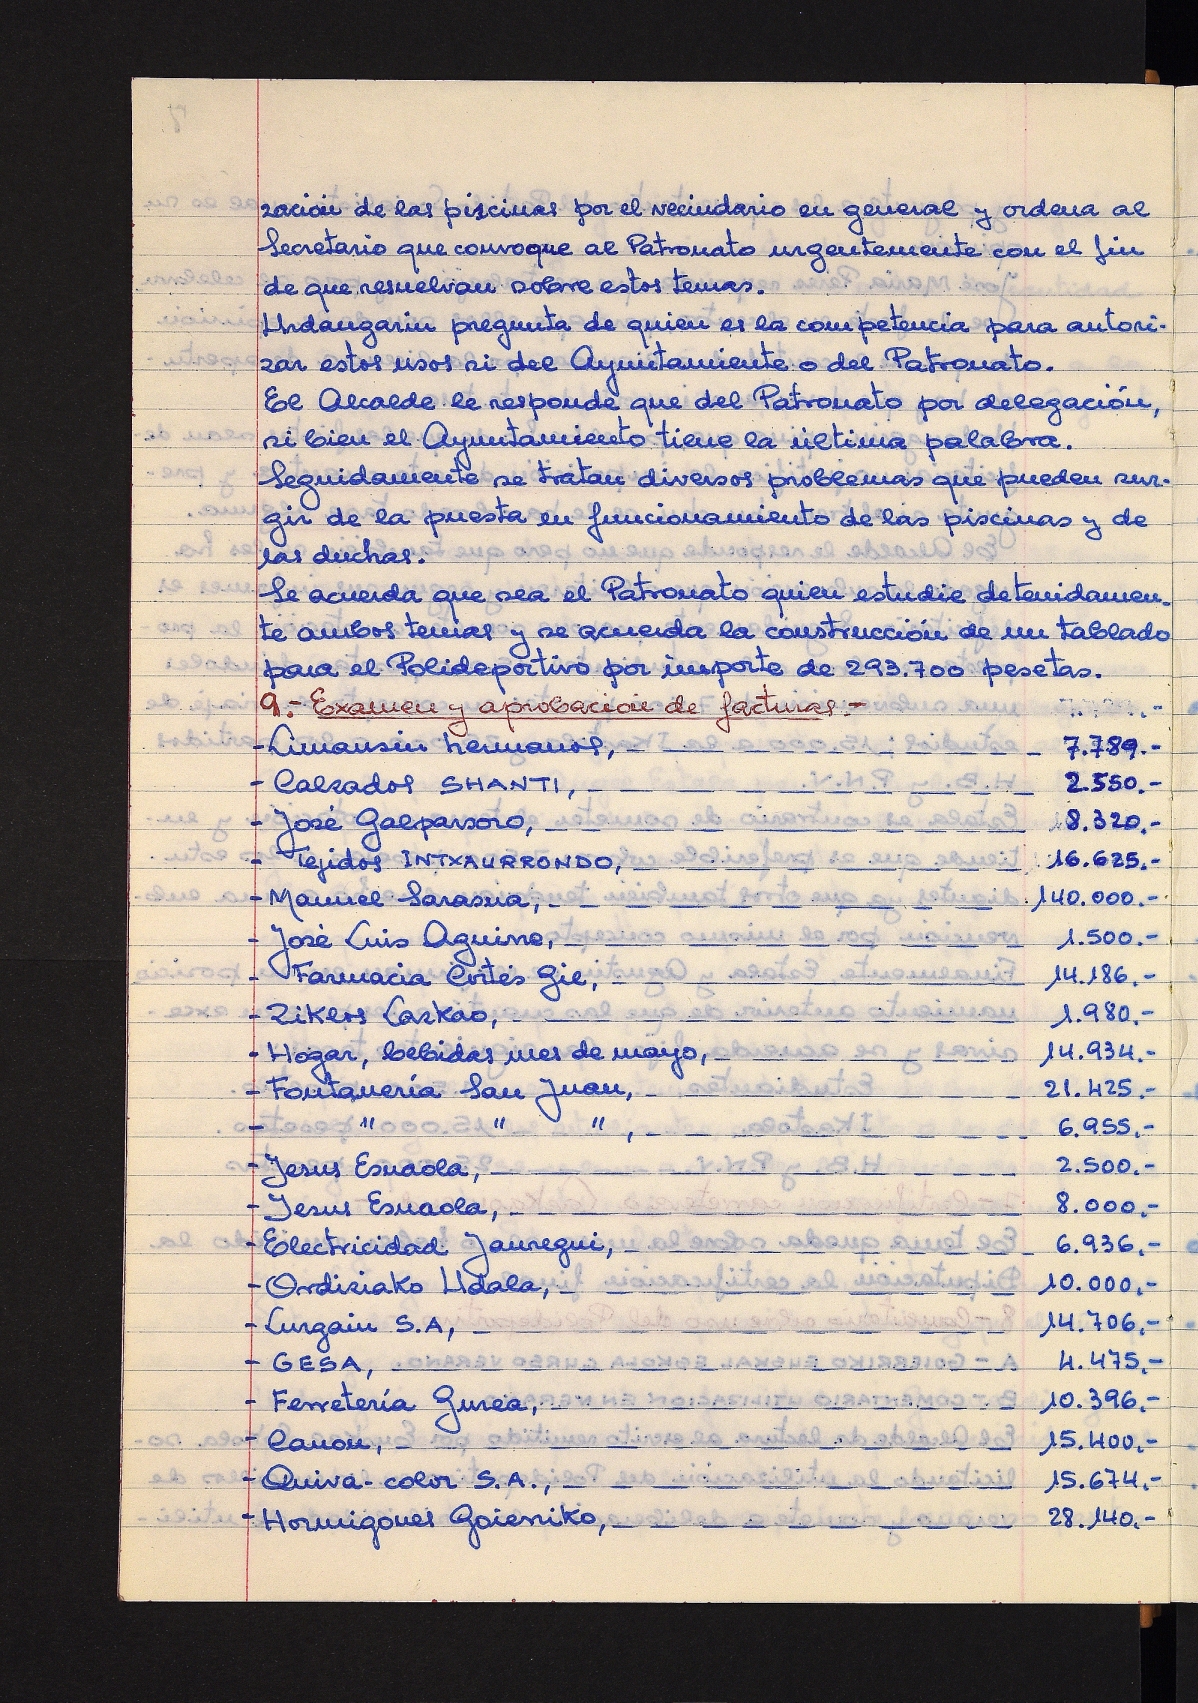 zación de las piscinas por el vecindario en general y ordena al
Secretario que convoque al Patronato urgentemente con el fin
de que resuelvan sobre estos temas.
Urdangarin pregunta de quien es la competencia para autori-
zar estos usos si del Ayuntamiento o del Patronato.
El Alcalde le responde que del Patronato por delegación,
si bien el Ayuntamiento tiene la última palabra.
Seguidamente se tratan diversos problemas que pueden sur-
gir de la puesta en funcionamiento de las piscinas y de
las duchas.
Se acuerda que sea el Patronato quien estudie detenidamen-
te ambos temas y se acuerda la construcción de un tablado
para el Polideportivo por importe de 293.700 pesetas.
9.- Examen y aprobación de facturas.-
- Limousin hermanos, 7.789.-
- Calzados SHANTI, 2.550.-
- José Galparsoro, 8.320.-
- Tejidos INTXAURRONDO, 16.625.-
- Manuel Sarasua, 140.000.-
- José Luis Aguirre, 1.500.-
- Farmacia Cortés Gil, 14.186.-
- Zikers Lazkao, 1.980.-
- Hogar, bebidas mes de mayo, 14.934.-
- Fontanería San Juan, 21.425.-
- " " ", 6.955.-
- Jesus Esnaola, 2.500.-
- Jesus Esnaola, 8.000.-
- Electricidad Jauregui, 6.936.-
- Ordiziako Udala, 10.000.-
- Lurgain S.A, 14.706.-
- GESA, 4.475.-
- Ferretería Gurea, 10.396.-
- Canon, 15.400.-
- Quiva-color S.A., 15.674.-
- Hormigones Goierriko, 28.140.-